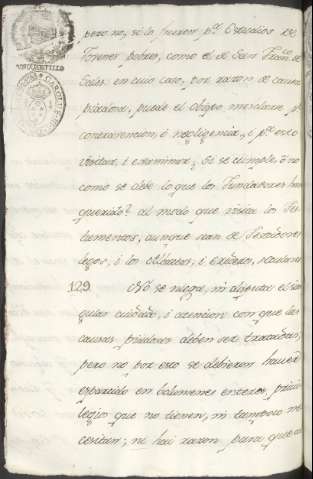 pero no, si lo fueren p.ª Estudios de
Jovenes pobres, como el de San Fran.co de
Sales en cuio caso, por razon de causa
piadosa, puede el obispo mesclarse p.r
contravencion, ò negligencia, i p.r esto
visitar, i examinar, si se cumple, ò no
como se debe lo que los Fundadores han
querido: al modo que visita los Tes-
tamentos, aunque sean de Testadores
legos, i los Albaceas, i seculares
129 No se niega, ni disputa el sin-
gular cuidado, i atencion con que las
causas piadosas deben ser tratadas,
pero no por esto se debieron haver
esparcido en volumenes enteros, privi-
legios que no tienen, ni tampoco ne-
cesitan; ni hai razon para que